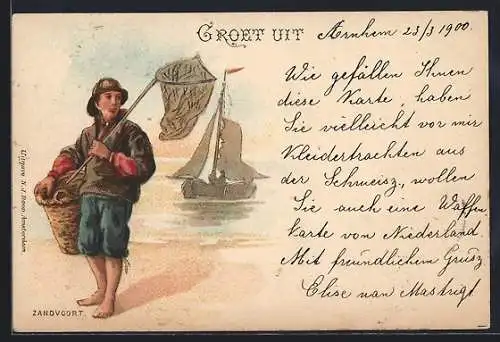 GROET UIT Arnhem 23/3 1900.
Wie gefällen Ihnen
diese Karte, haben
Sie vielleicht vor mir
Kleidertrachten aus
der Schweisz, wollen
Sie auch eine Waffen
karte von Niederland.
Mit freundlichem Grusz
Elise van Mastrigt
Uitgave N. J. Boon, Amsterdam
ZANDVOORT.